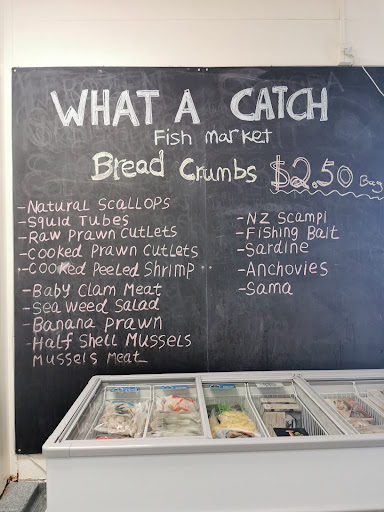 WHAT A CATCH
Fish market
Bread Crumbs $2.50 Bag
-Natural Scallops
-Squid Tubes
-Raw Prawn Cutlets
-Cooked Prawn Cutlets
-Cooked Peeled Shrimp
-Baby Clam Meat
-Sea Weed Salad
-Banana Prawn
-Half Shell Mussels
Mussels Meat
-NZ Scampi
-Fishing Bait
-Sardine
-Anchovies
-Sama